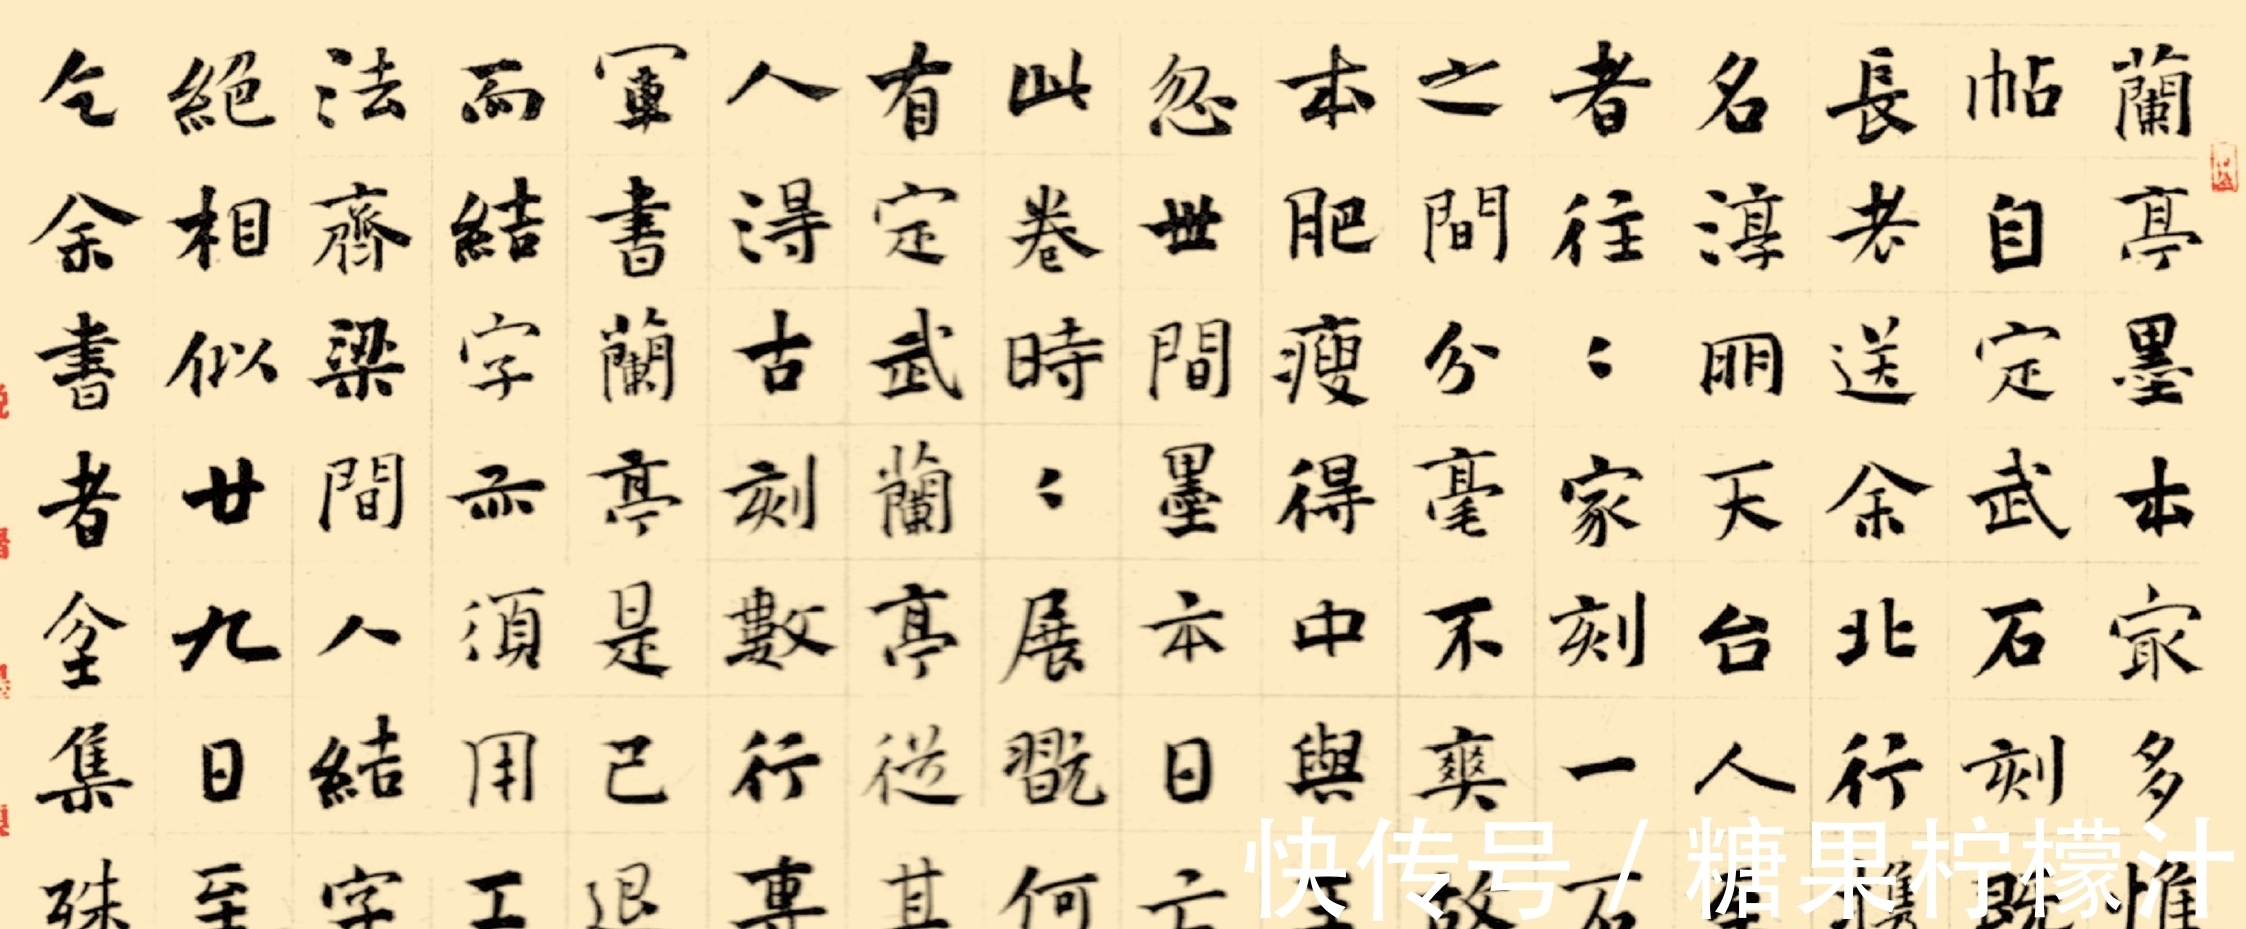 蘭亭墨本冣多惟
帖自定武石刻既
長老送余北行攜
名淳朙天台人
者往〻家刻一石
之間分毫不爽故
本肥瘦得中與
忽世間墨本日亡
此卷時〻展翫何
有定武蘭亭從其
人得古刻數行專
軍書蘭亭是已退
而結字亦須用工
法齊梁間人結字
絕相似廿九日至
乞余書者坌集殊
快传号/糖果柠檬汁